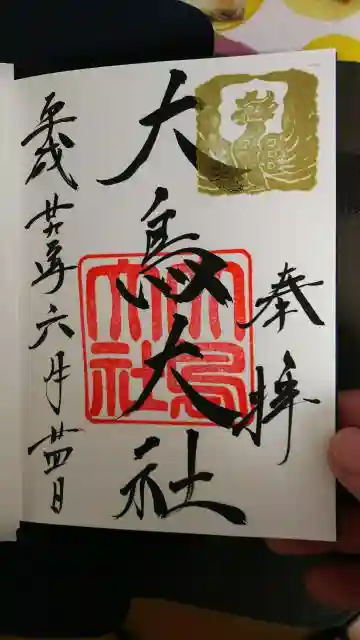 奉拝
大鳥大社
大鳥
大社
平成廿九年六月廿四日